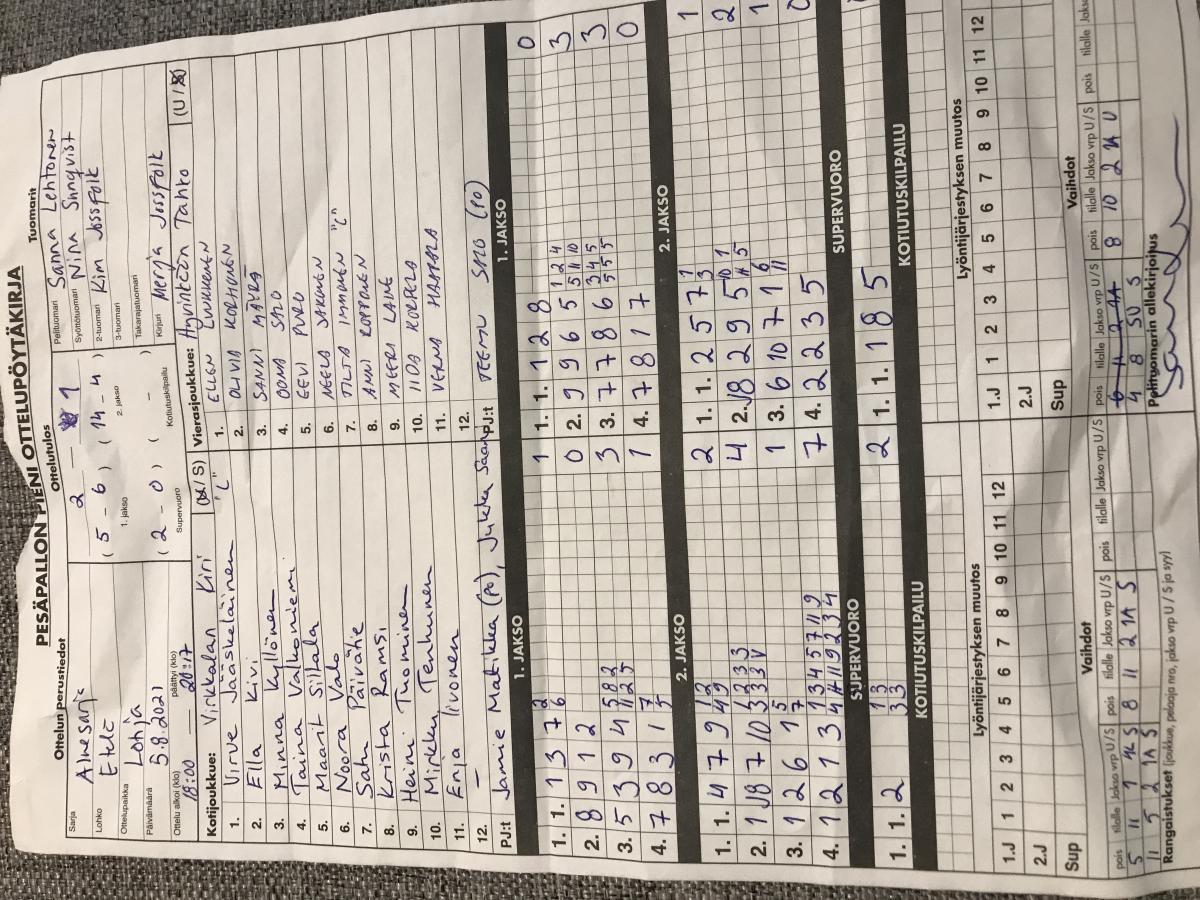 PESÄPALLON PIENI OTTELUPÖYTÄKIRJA
Ottelun perustiedot
Sarja Aluesarja
Lohko Etelä
Ottelupaikka Lohja
Päivämäärä 5.8.2021
Ottelu alkoi (klo) 18:00 päättyi (klo) 20:17
Ottelutulos
2 - 1
( 5 - 6 ) ( 14 - 4 )
1. jakso 2. jakso
( 2 - 0 ) ( - )
Supervuoro Kotiutuskilpailu
Tuomarit
Pelituomari Sanna Lehtonen
Syöttötuomari Nina Sunqvist
2-tuomari Kim Jossfolk
3-tuomari
Takarajatuomari
Kirjuri Merja Jossfolk
Kotijoukkue: Virkkalan Kiri (U / S)
1. Virve Jääskeläinen "L"
2. Ella Kivi
3. Minna Kyllönen
4. Taina Valkoniemi
5. Maarit Siltala
6. Noora Valo
7. Satu Päivätie
8. Krista Ramsi
9. Heini Thominen
10. Mirkku Tenhunen
11. Enja Iivonen
12. -
PJ:t Jamie Matikka (PO), Jukka Saari
Vierasjoukkue: Hyvinkään Tahko (U / S)
1. ELLEN LUUKKONEN
2. OLIVIA KORHONEN
3. SANNI MÄYRÄ
4. OONA SALO
5. EEVI PURO
6. NEELA SAKONEN
7. TILTA IMMONEN "C"
8. ANNI ROPPONEN
9. MEERI LAINE
10. IIDA KORPELA
11. VENNA HAAPALA
12.
PJ:t TEEMU SALO (PO)
1. JAKSO
1. 1. 1 3 7 2 6 1
2. 8 9 1 2 0
3. 5 3 9 4 5 8 2 11 2 5 3
4. 7 8 3 1 7 5 1
1. JAKSO
1. 1. 1 2 8 0
2. 9 9 6 5 1 2 4 5 11 10 3
3. 7 7 8 6 3 4 5 5 5 5 3
4. 7 8 1 7 0
2. JAKSO
1. 1. 4 7 9 1 2 4 9 2
2. 7 10 1 2 3 3 3 3 3 V 4
3. 1 2 6 1 5 7 1
4. 1 2 1 3 1 3 4 5 7 11 9 7
2. JAKSO
1. 1. 2 5 7 1 3 1
2. 2 9 5 10 1 11 5 2
3. 6 10 7 1 6 11 1
4. 2 2 3 5 0
SUPERVUORO
1. 1. 2 1 3 3 3 2
SUPERVUORO
1. 1. 1 8 5
KOTIUTUSKILPAILU
KOTIUTUSKILPAILU
Lyöntijärjestyksen muutos
1.J 1 2 3 4 5 6 7 8 9 10 11 12
2.J
Sup
Lyöntijärjestyksen muutos
1.J 1 2 3 4 5 6 7 8 9 10 11 12
2.J
Sup
Vaihdot
pois tilalle Jakso vrp U/S pois tilalle Jakso vrp U/S pois tilalle Jakso vrp U/S
5 11 1 S 8 11 2 1A S
11 5 2 1A S
Vaihdot
pois tilalle Jakso vrp U/S pois tilalle Jakso vrp U/S pois tilalle
8 10 2 1A U
4 8 SU S
Rangaistukset (joukkue, pelaaja nro, jakso vrp U / S ja syy)
Pelituomarin allekirjoitus